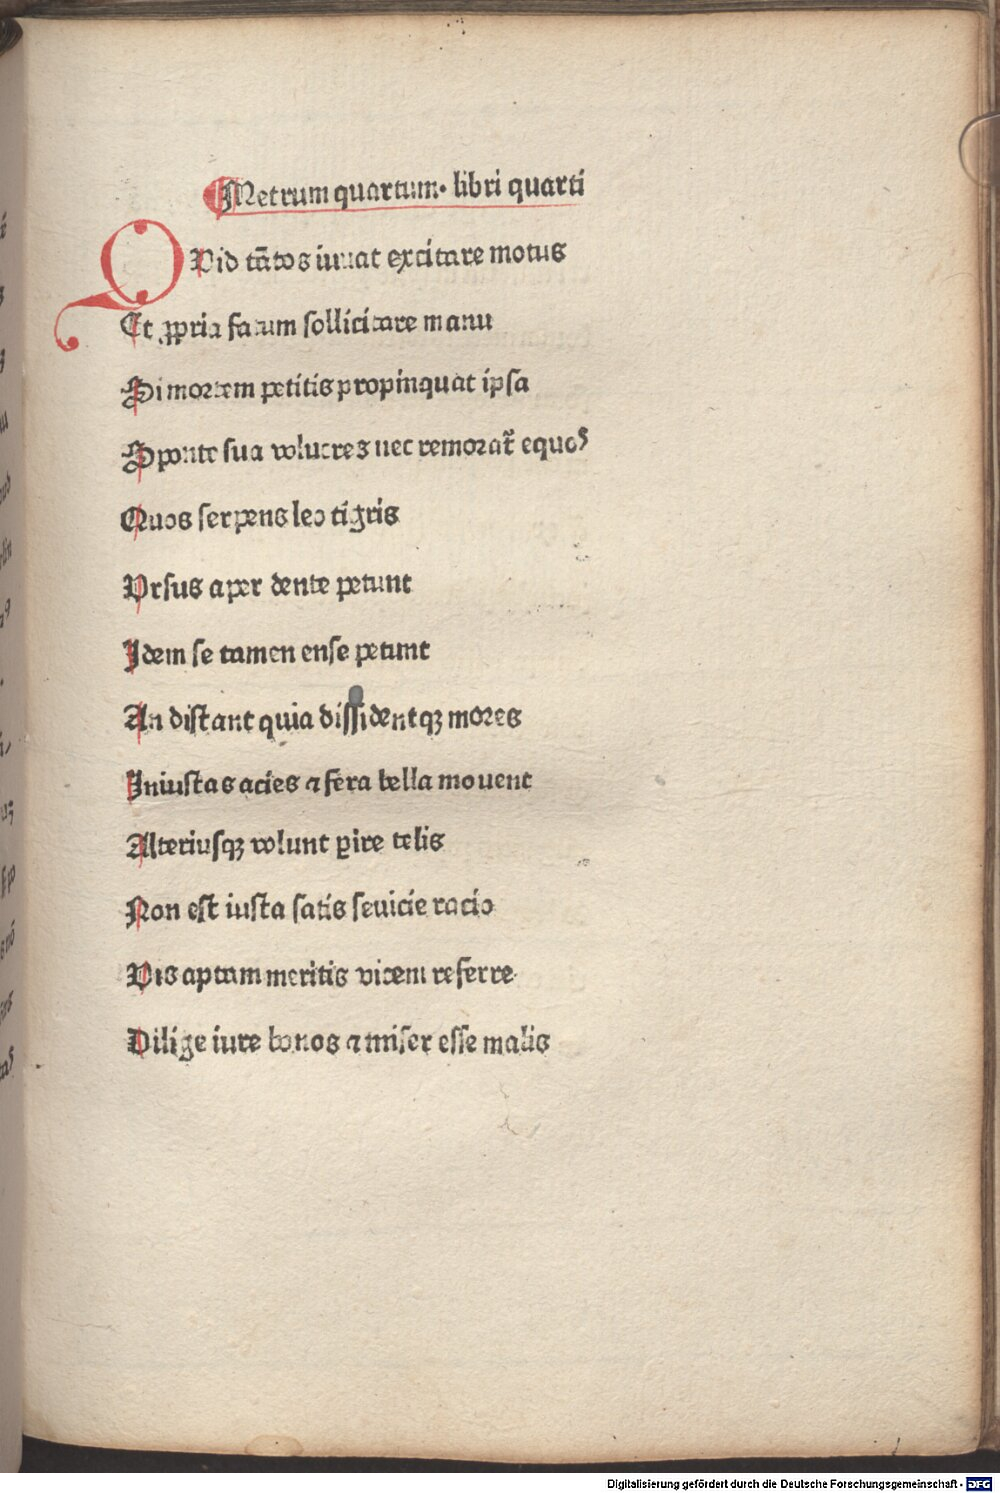 Metrum quartum· libri quarti
QVid tātos iuuat excitare motus
Et ꝓpria fatum sollicitare manu
Si mortem petitis propinquat ipsa
Sponte sua volucres nec remorat᷑ equos
Quos serpens leo tigris
Vrsus aper dente petunt
Idem se tamen ense petunt
An distant quia dissidentqꝫ mores
Iniustas acies ⁊ fera bella mouent
Alteriusqꝫ volunt ꝑire telis
Non est iusta satis seuicie racio
Vis aptam meritis vicem referre
Dilige iure bonos ⁊ miser esse malis
Digitalisierung gefördert durch die Deutsche Forschungsgemeinschaft - DFG